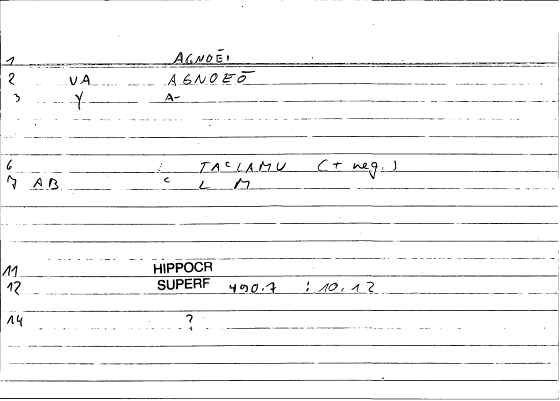 1 AGNOĒI
2 VA AGNOEŌ
3 Y A-
6 TAᶜLAMU (+ neg.)
7 AB ᶜ L M
11 HIPPOCR
12 SUPERF 490.7 : 10.12
14 ?